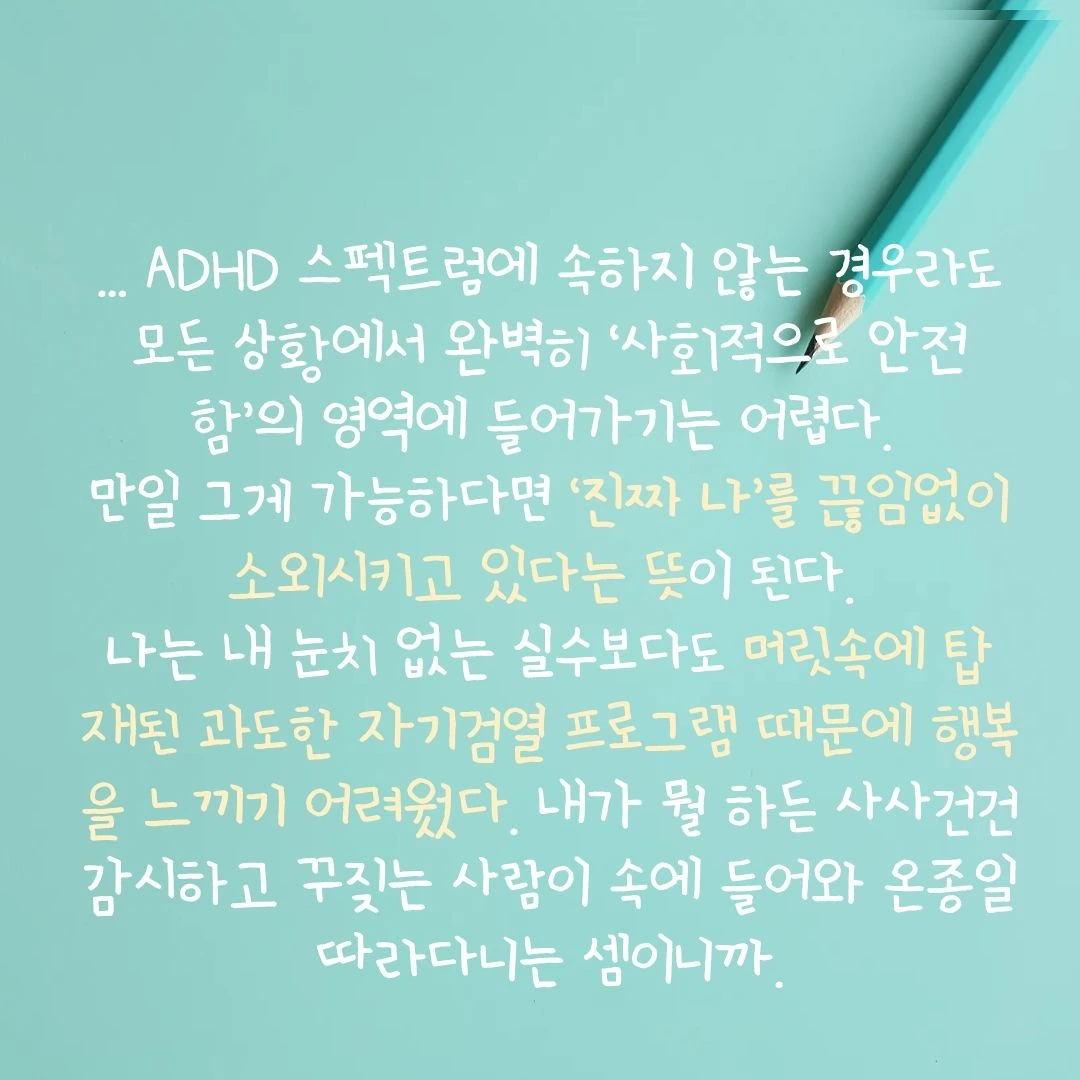 ... ADHD 스펙트럼에 속하지 않는 경우라도
모든 상황에서 완벽히 ‘사회적으로 안전
함’의 영역에 들어가기는 어렵다.
만일 그게 가능하다면 ‘진짜 나’를 끊임없이
소외시키고 있다는 뜻이 된다.
나는 내 눈치 없는 실수보다도 머릿속에 탑
재된 과도한 자기검열 프로그램 때문에 행복
을 느끼기 어려웠다. 내가 뭘 하든 사사건건
감시하고 꾸짖는 사람이 속에 들어와 온종일
따라다니는 셈이니까.